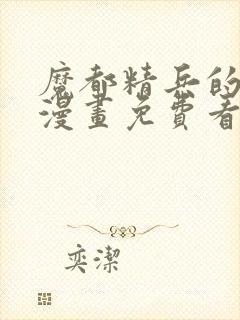 魔都精兵的
漫畫免費看
奕潔